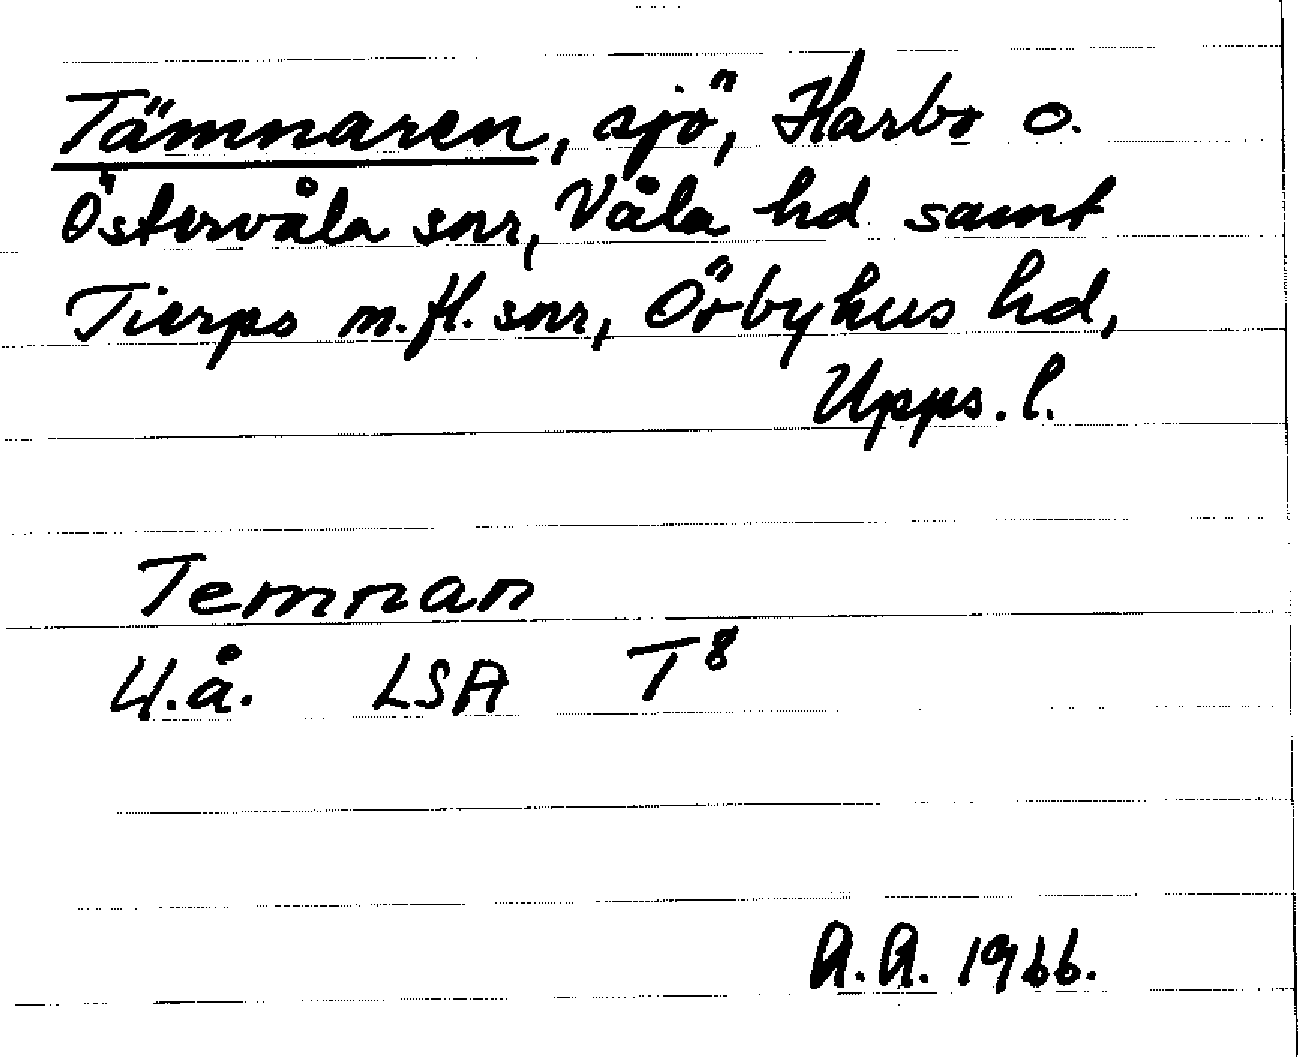 Tämnaren, sjö, Harbo o.
Östervåla snr, Våla hd samt
Tierps m.fl. snr, Örbyhus hd,
Upps. l.
Temnan
U.å. LSA T⁸
A.A. 1966.